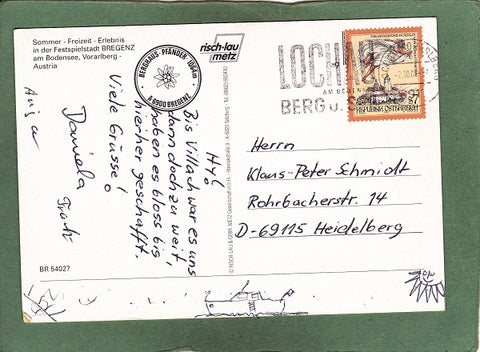 Sommer - Freizeit - Erlebnis
in der Festspielstadt BREGENZ
am Bodensee, Vorarlberg -
Austria
BERGHAUS-PFÄNDER
A 6900 BREGENZ
risch-lau
metz
LOCH
AM BOD
BERG U. S
REPUBLIK ÖSTERREICH
Hy!
Bis Villach war es uns
dann doch zu weit,
haben es bloss bis
hierher geschafft.
Viele Grüsse!
Daniela
Herrn
Klaus-Peter Schmidt
Rohrbacherstr. 14
D-69115 Heidelberg
BR 54027